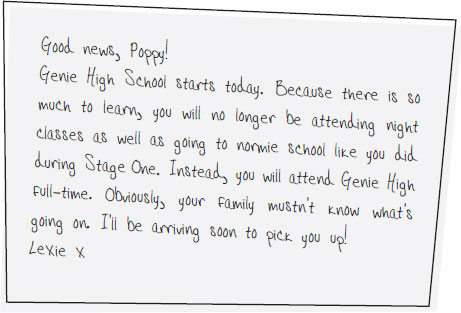 Good news, Poppy!
Genie High School starts today. Because there is so
much to learn, you will no longer be attending night
classes as well as going to normie school like you did
during Stage One. Instead, you will attend Genie High
full-time. Obviously, your family mustn't know what's
going on. I'll be arriving soon to pick you up!
Lexie x